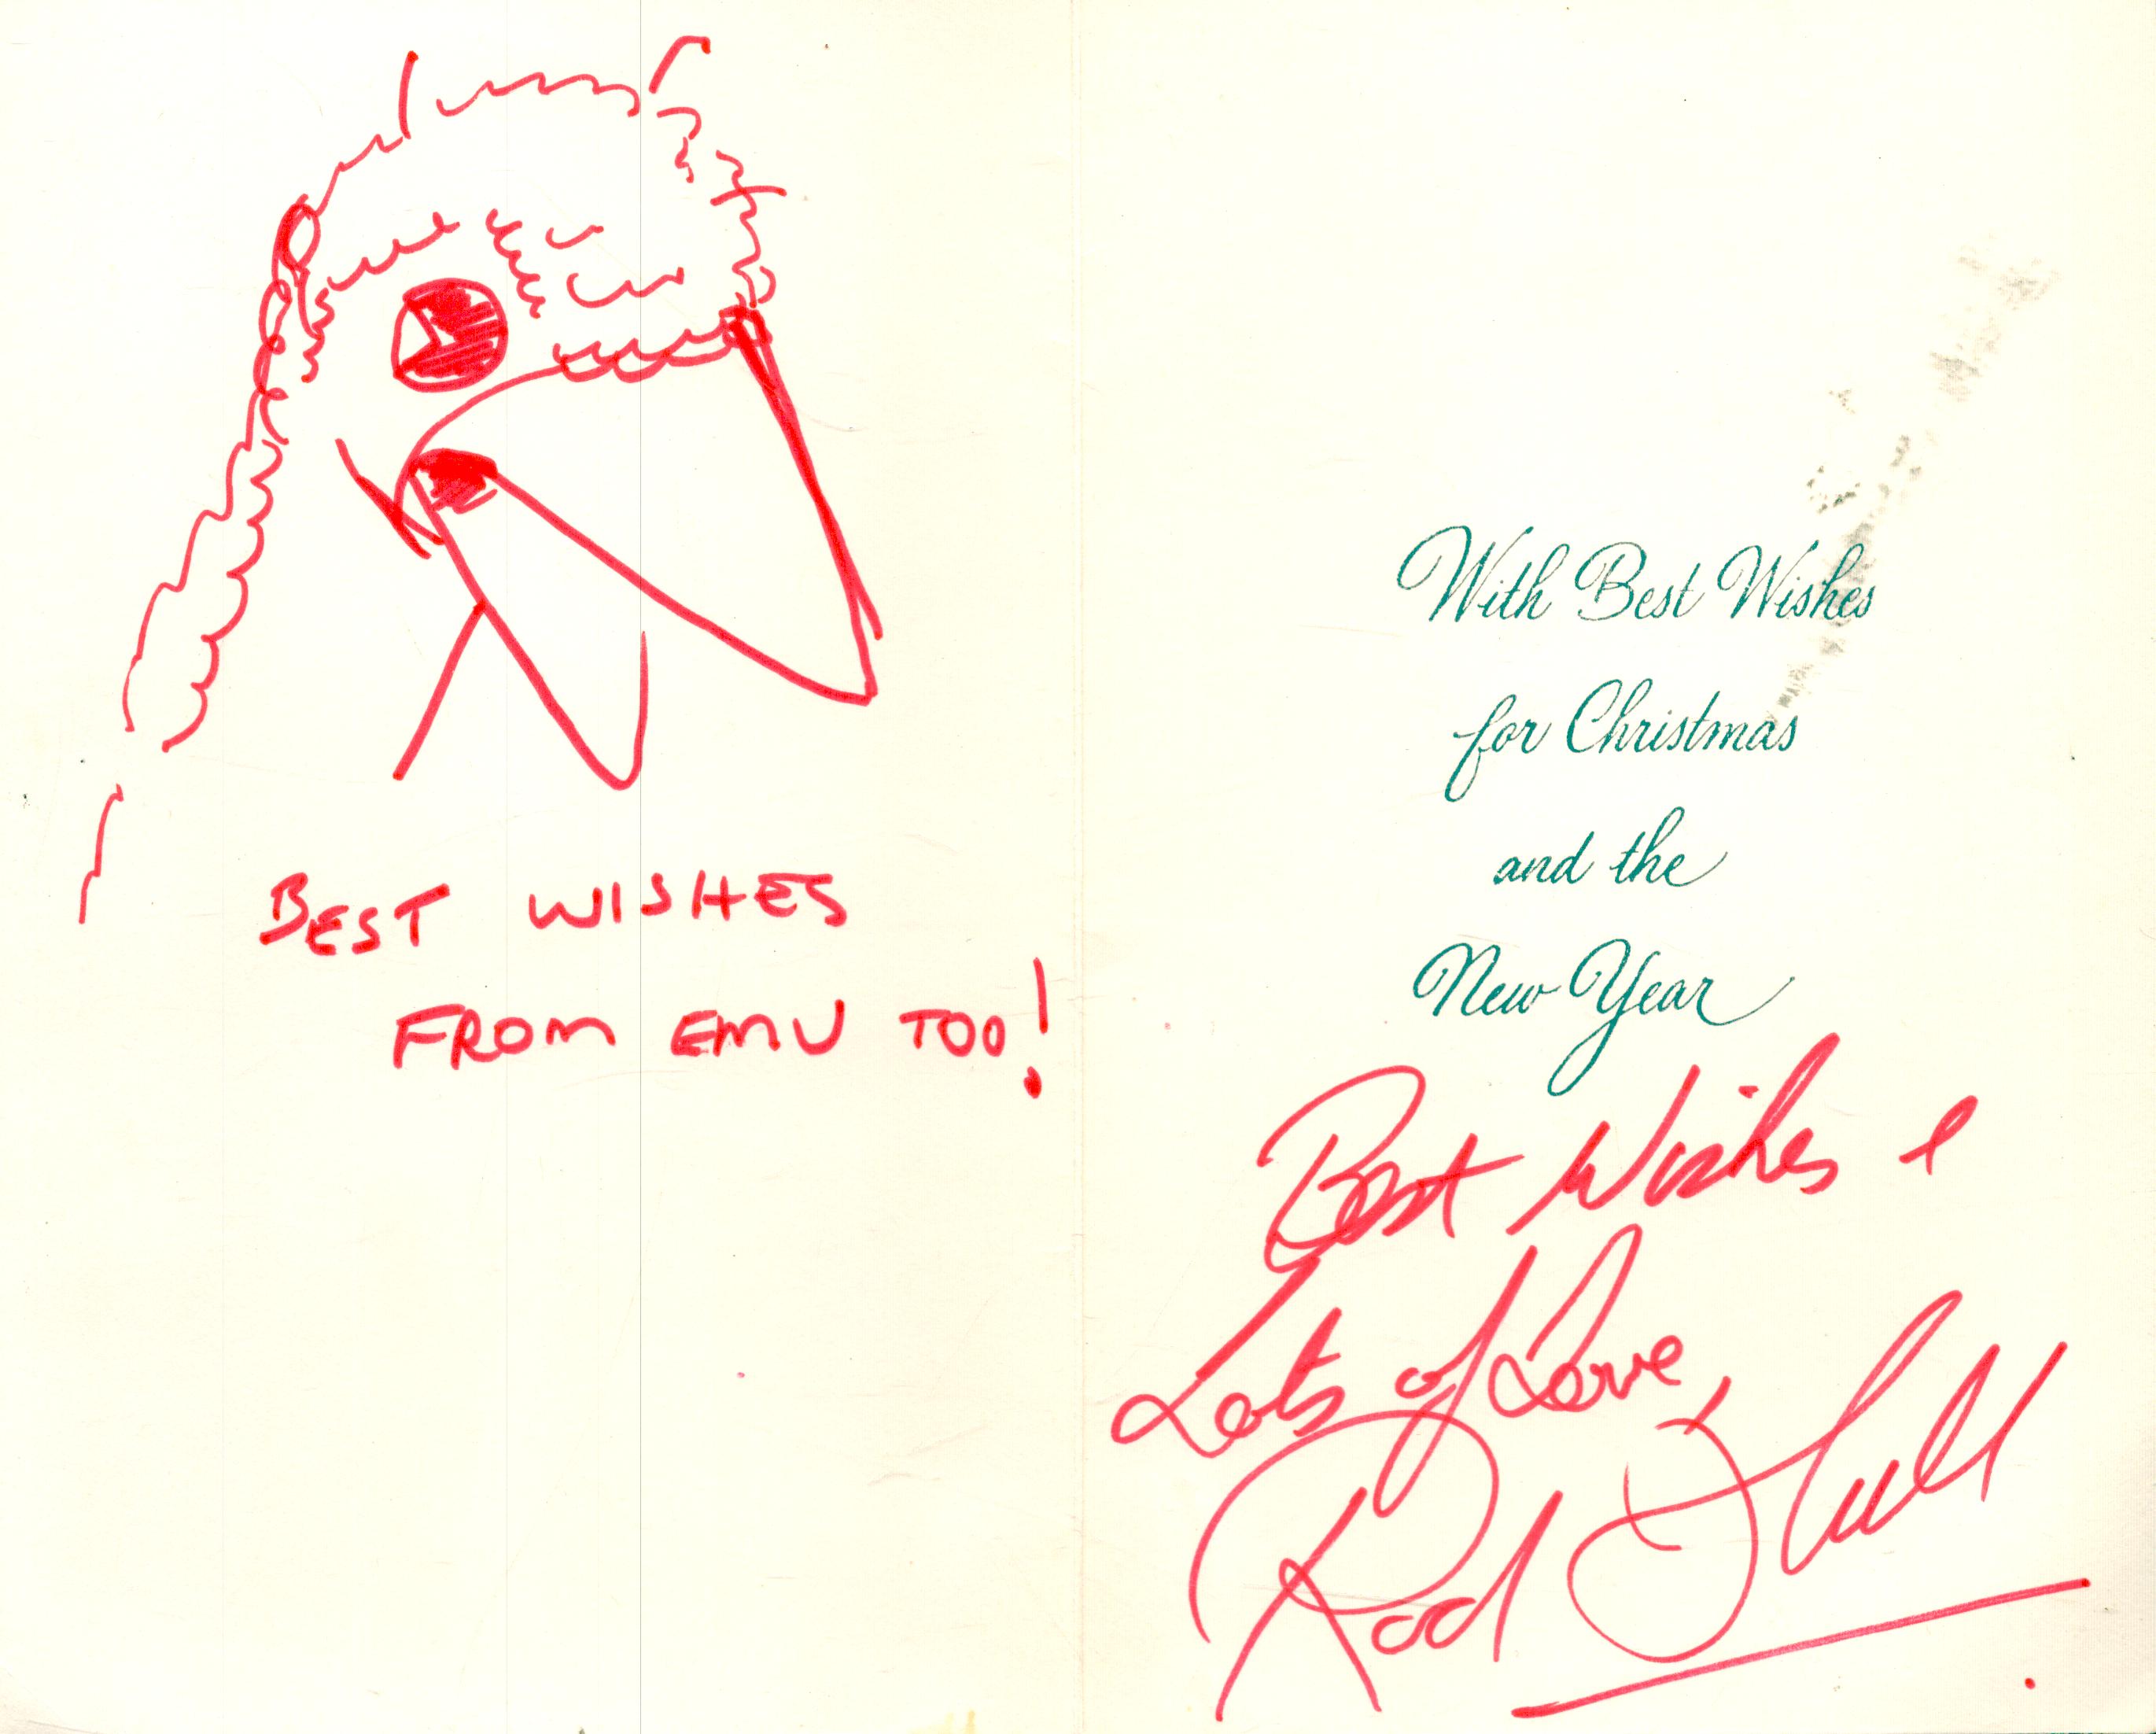 BEST WISHES
FROM EMU TOO!
With Best Wishes
for Christmas
and the
New Year
Best Wishes &
Lots of Love,
Rod Hull